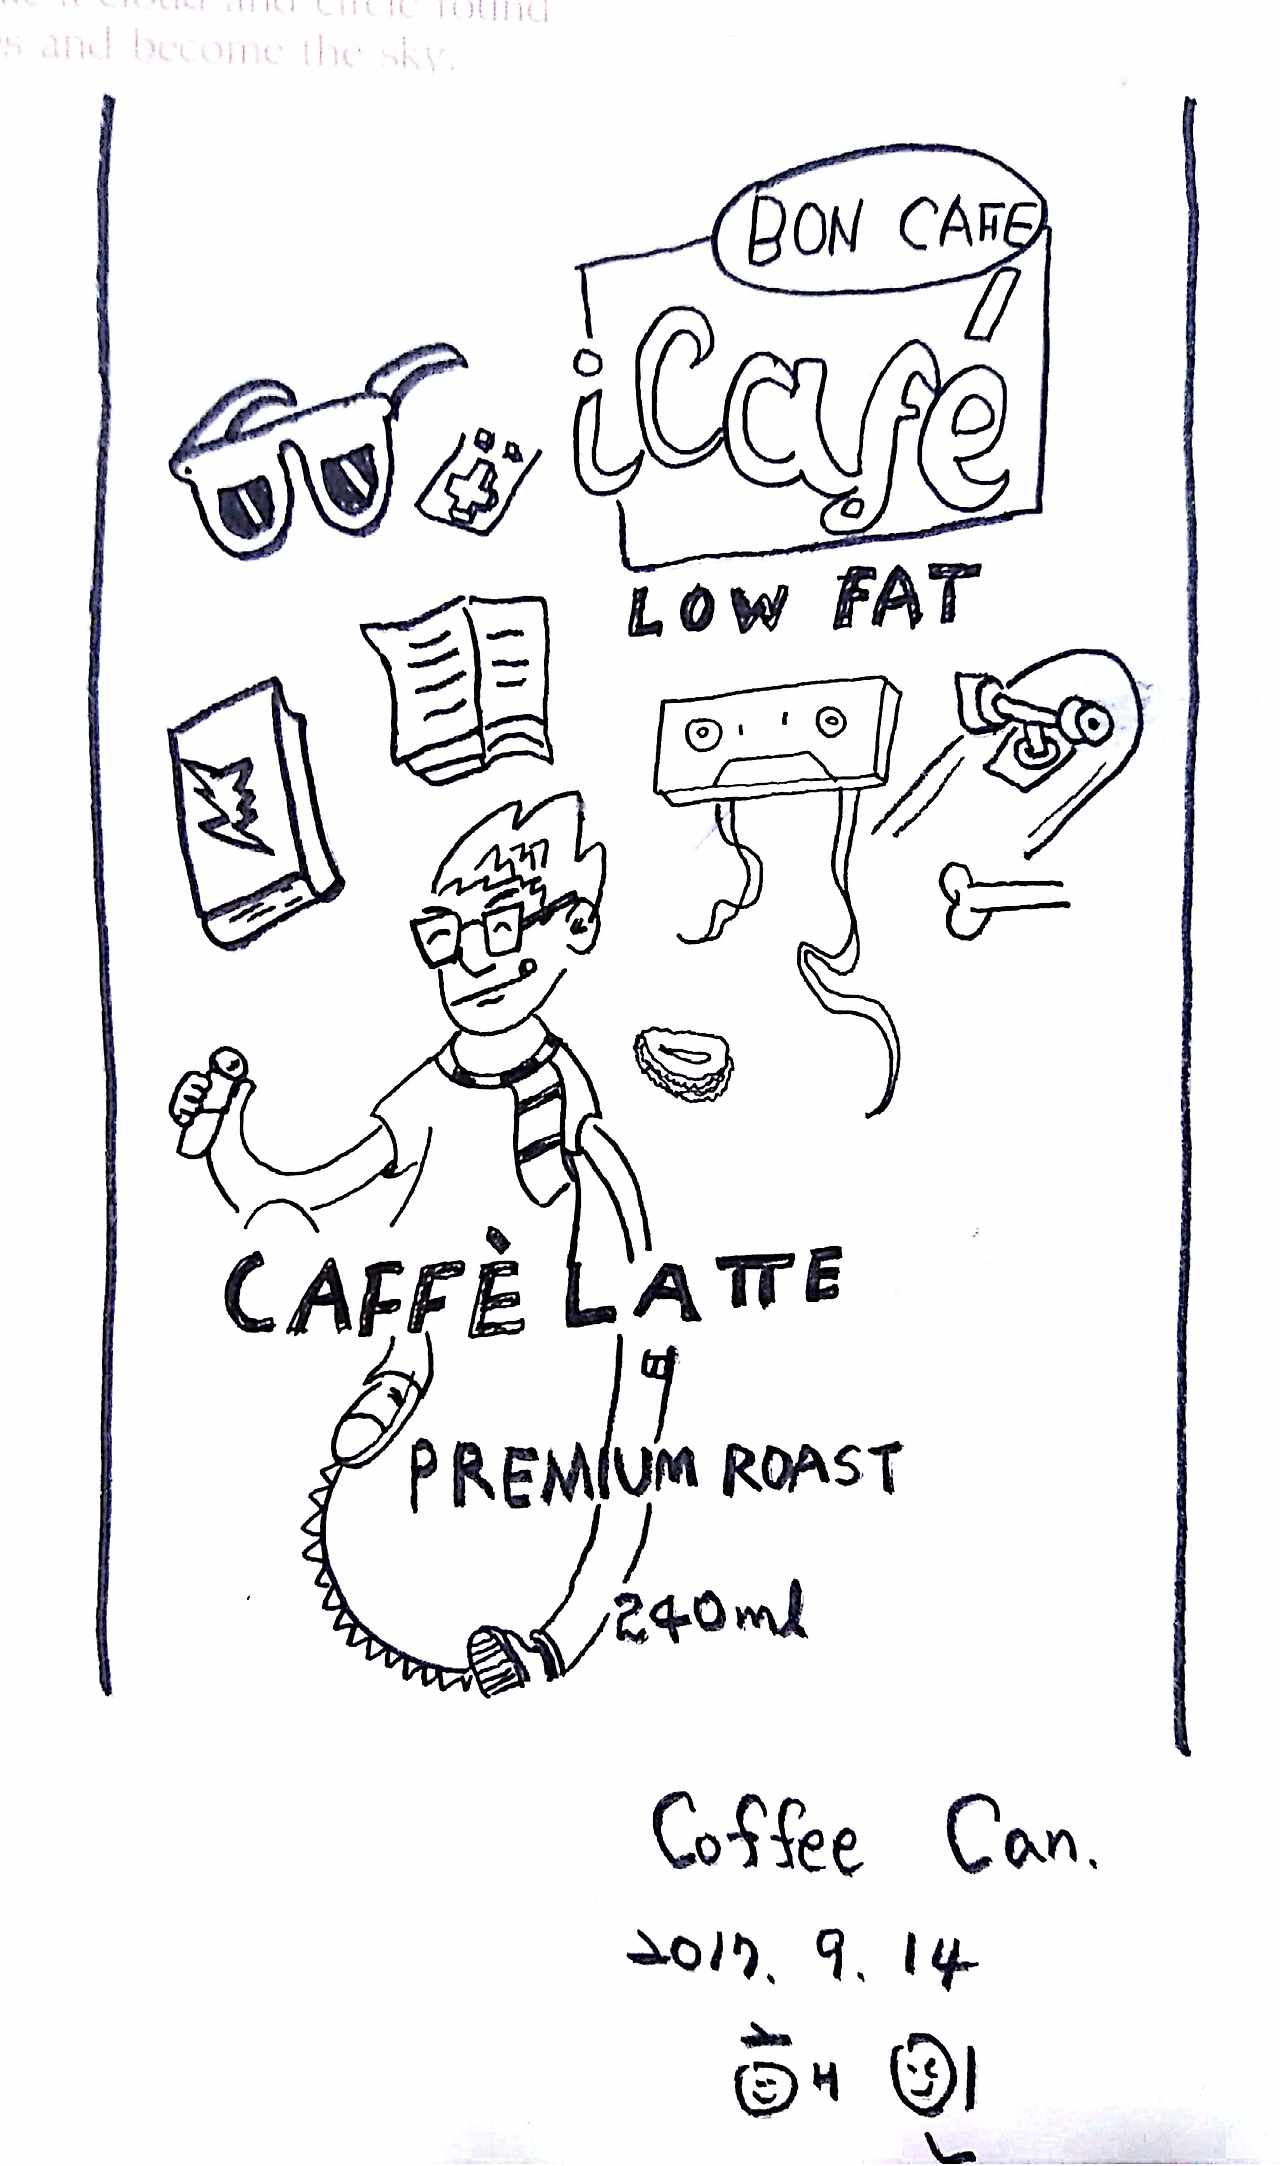 cloud and circle round
and become the sky.
BON CAFFE
iCafé
LOW FAT
CAFFÈ LATTE
PREMIUM ROAST
240ml
Coffee Can.
2017. 9. 14
해인